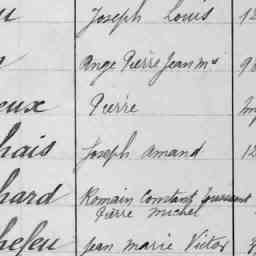 u Joseph Louis 12
Ange Pierre Jean Me
eux Pierre
hais Joseph Amand 12
hard Romain Constant Toussaint
Pierre Michel
hefeu Jean Marie Victor